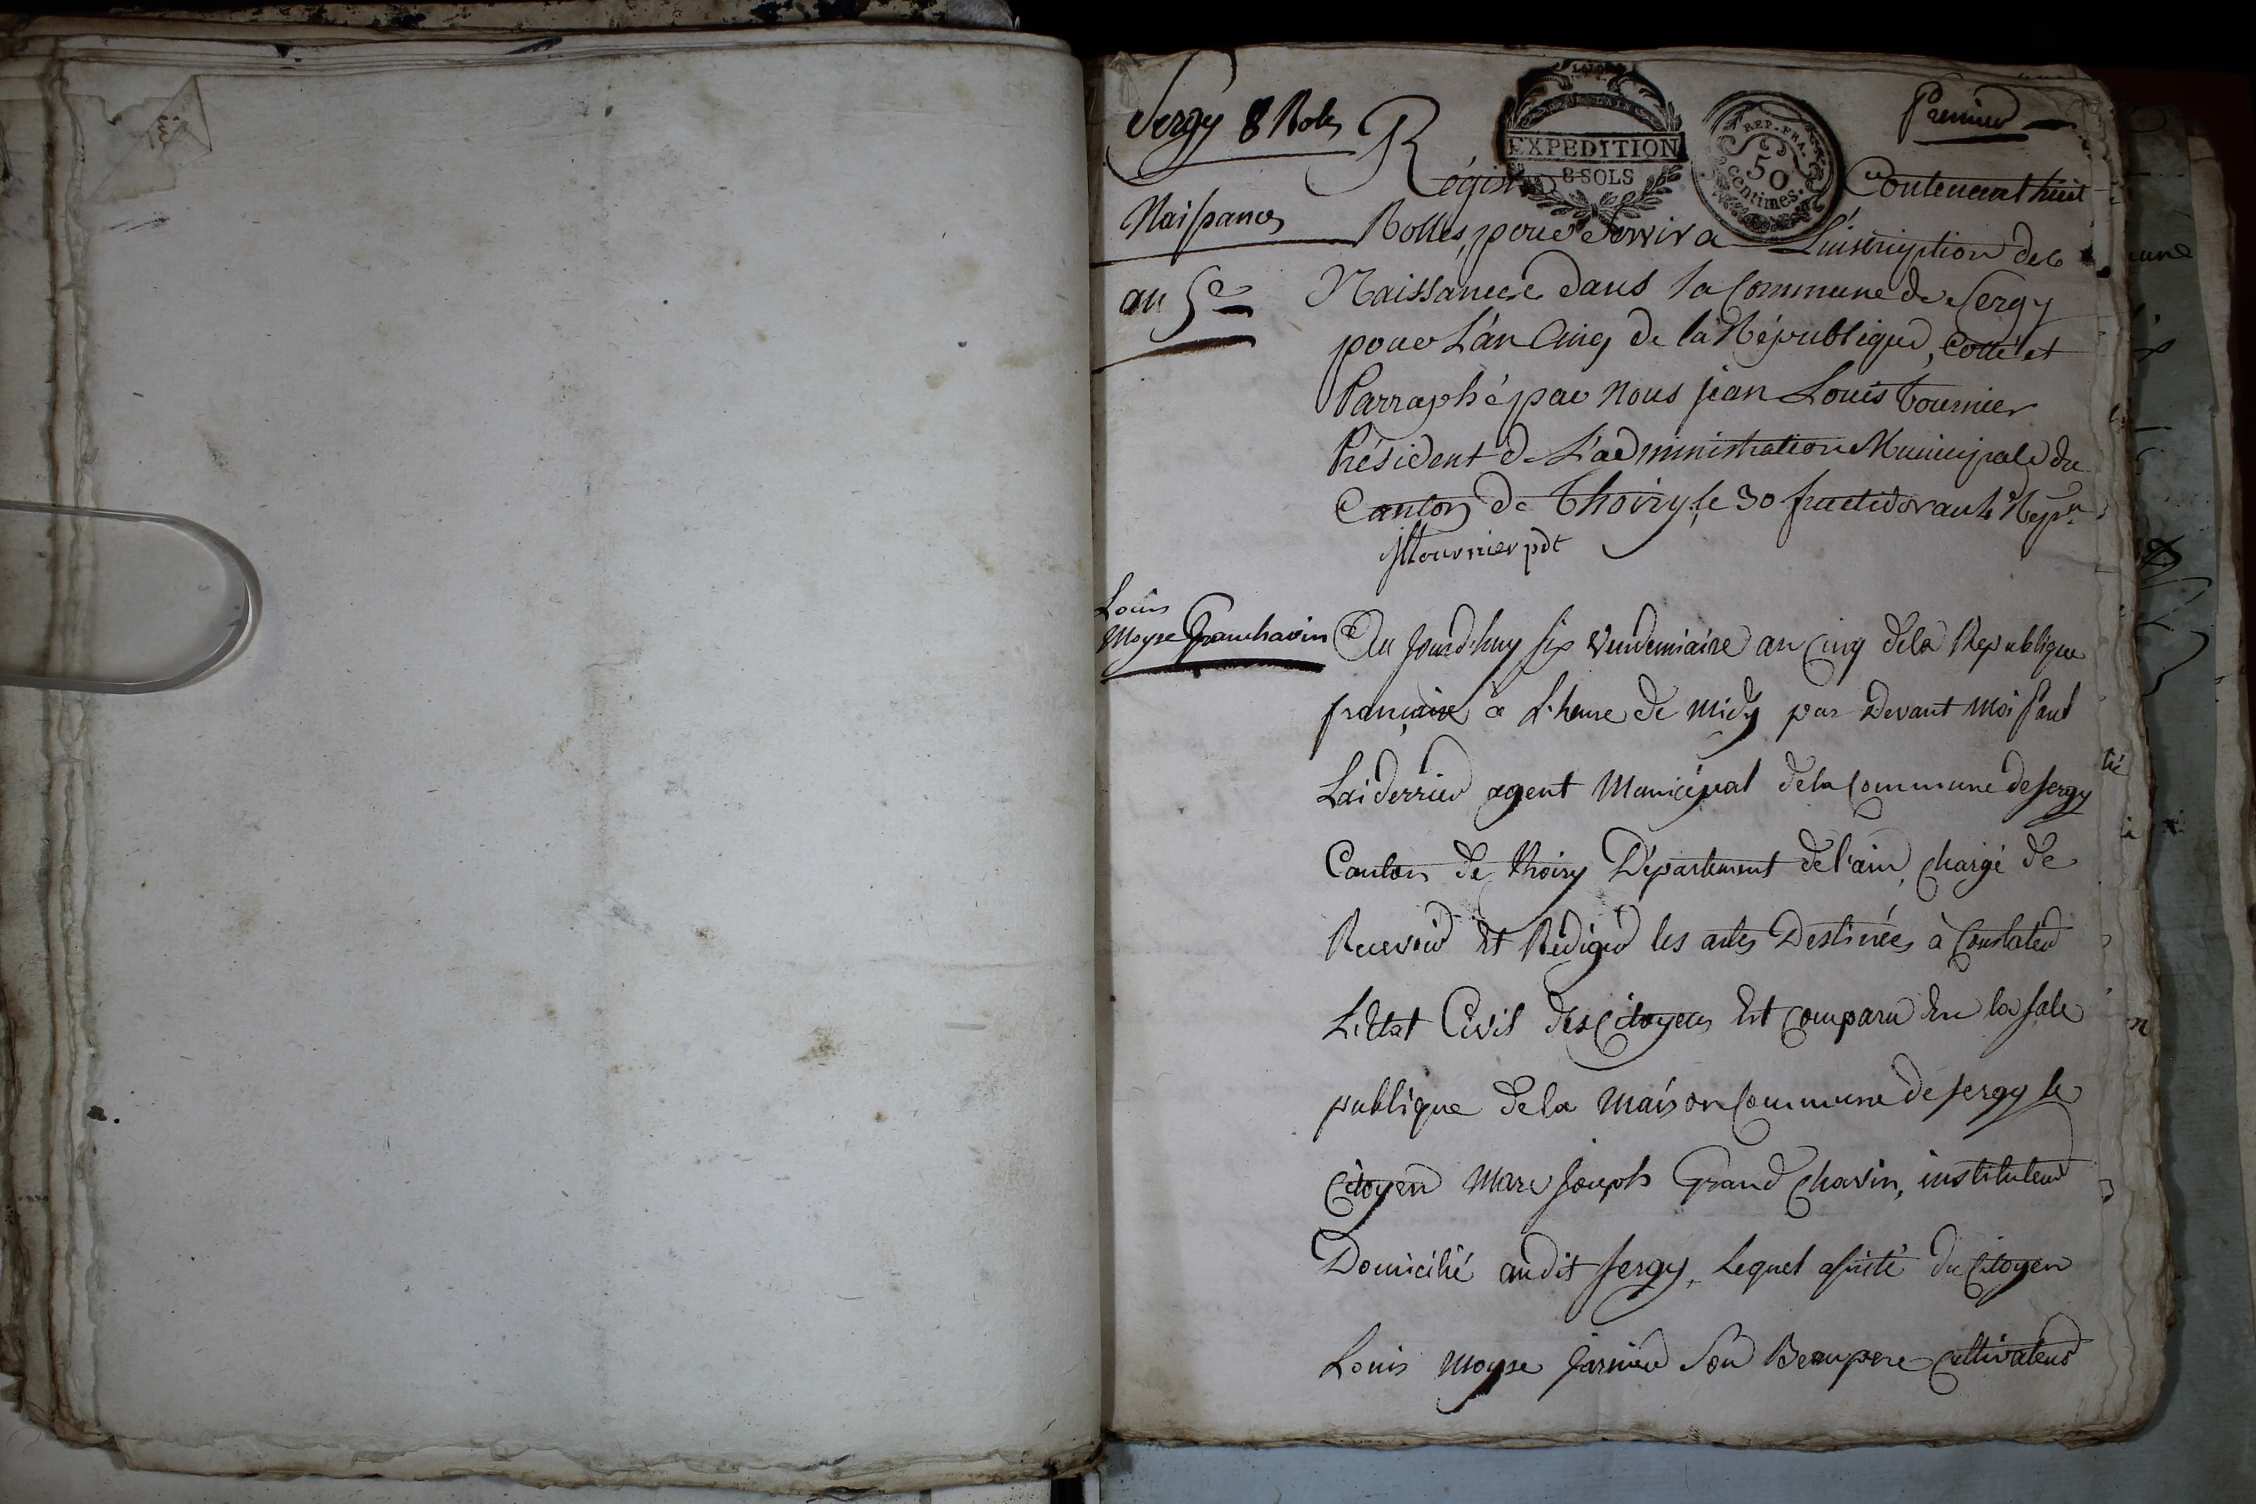 Sergy 8 Roles
Naissances
an 5e
Premier
EXPEDITION
8 SOLS
REP. FRA.
50
centimes
Régistre Contenant huit
Rolles, pour Servir a L'inscription des
Naissances dans la Commune de Sergy
pour L'an Cinq de la République, Cotté et
Parraphé par Nous jean Louis Tournier
Président de L'administration Municipale du
Canton de Thoiry, le 30 fructidor an 4e Repn.
JLTournier pdt
Louis
Moyse Granchavin
Au Jourd'huy six Vendemiaire an Cinq de la Republique
française à L'heure de Midy par Devant Moi Paul
Laiderrier agent Municipal de la Commune de Sergy
Canton de thoiry Département de l'ain, chargé de
Recevoir Et Rédiger les actes Destinées à Constater
L'Etat Civil des Citoyens Est Comparu En la Sale
publique de la Maison Commune de Sergy le
Citoyen Marc Joseph Grand Chavin, instituteur
Domicilié audit Sergy, Lequel assisté du Citoyen
Louis Moyse Son Beaupere Cultivateur